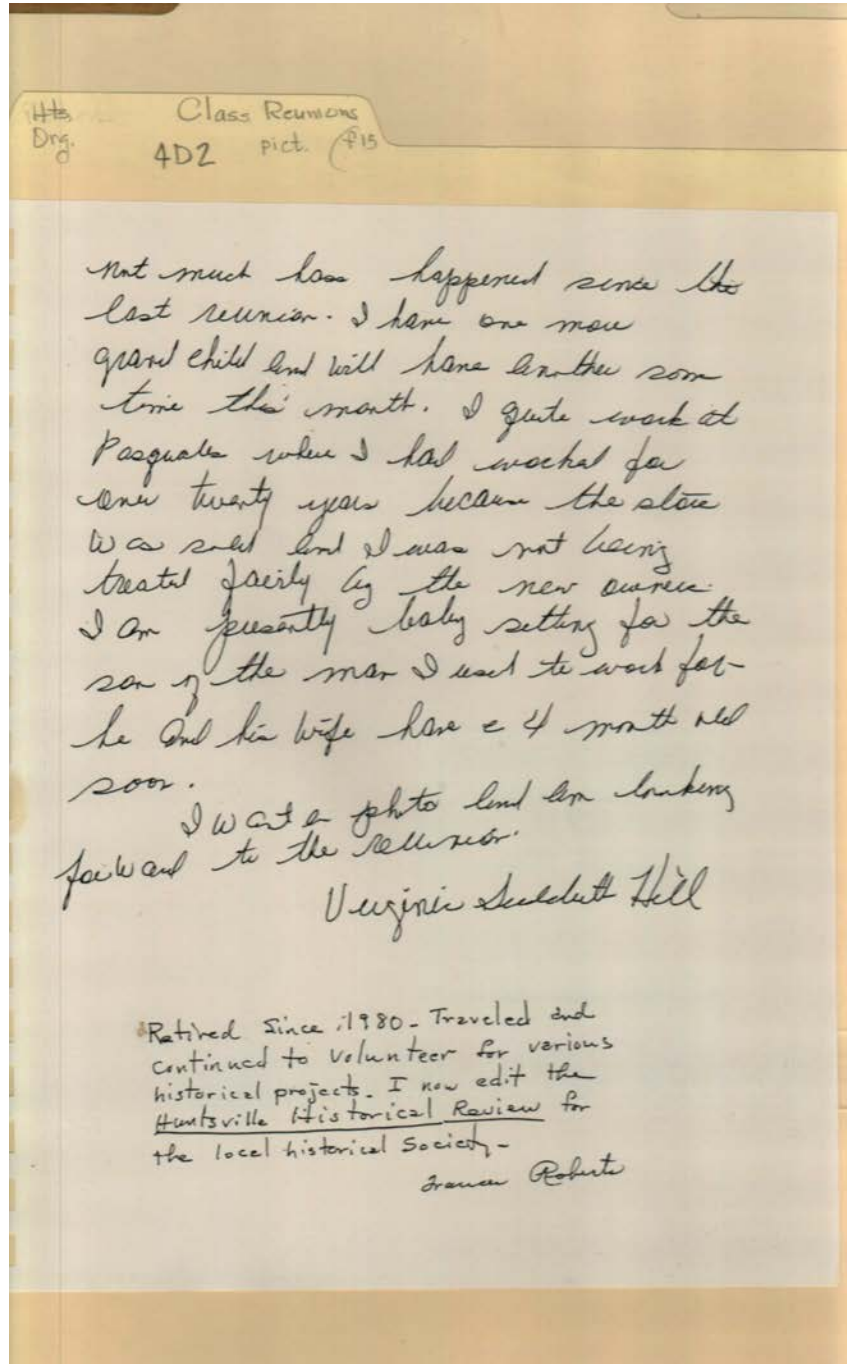 Hts. Class Reunions
Org. 4D2 pict. ($15
Not much has happened since the
last reunion. I have one more
grand child and will have another som
time this month. I quite work at
Pasquales where I had worked for
over twenty years because the store
was sold and I was not being
treated fairly by the new owner.
I am presently baby setting for the
son of the man I used to work for-
he and his wife have a 4 month old
soon.
I want a photo and am looking
forward to the reunion.
Virginia Hill
Retired Since 1980 - Traveled and
continued to volunteer for various
historical projects. I now edit the
Huntsville Historical Review for
the local historical Society -
Frances Roberts